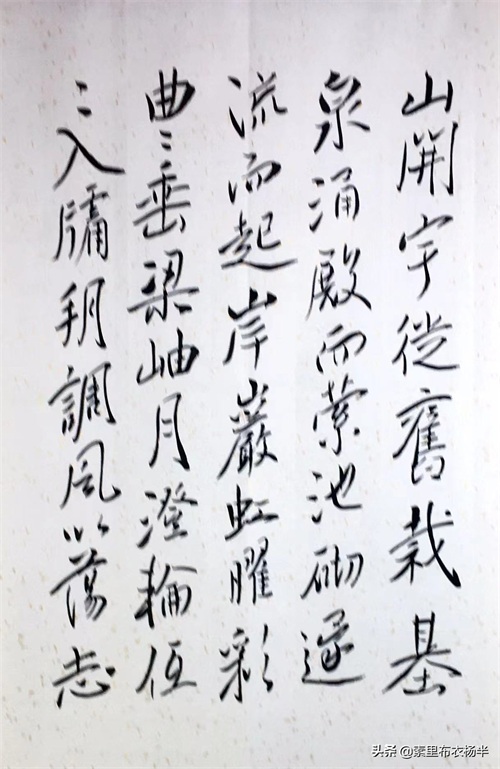 山開宇從舊裁基
泉涌殿而縈池砌遂
流而起岸巖虹曜彩
曲〻垂梁岫月澄輪低
〻入牖朝調風以蕩志
头条 @蓁里布衣杨半